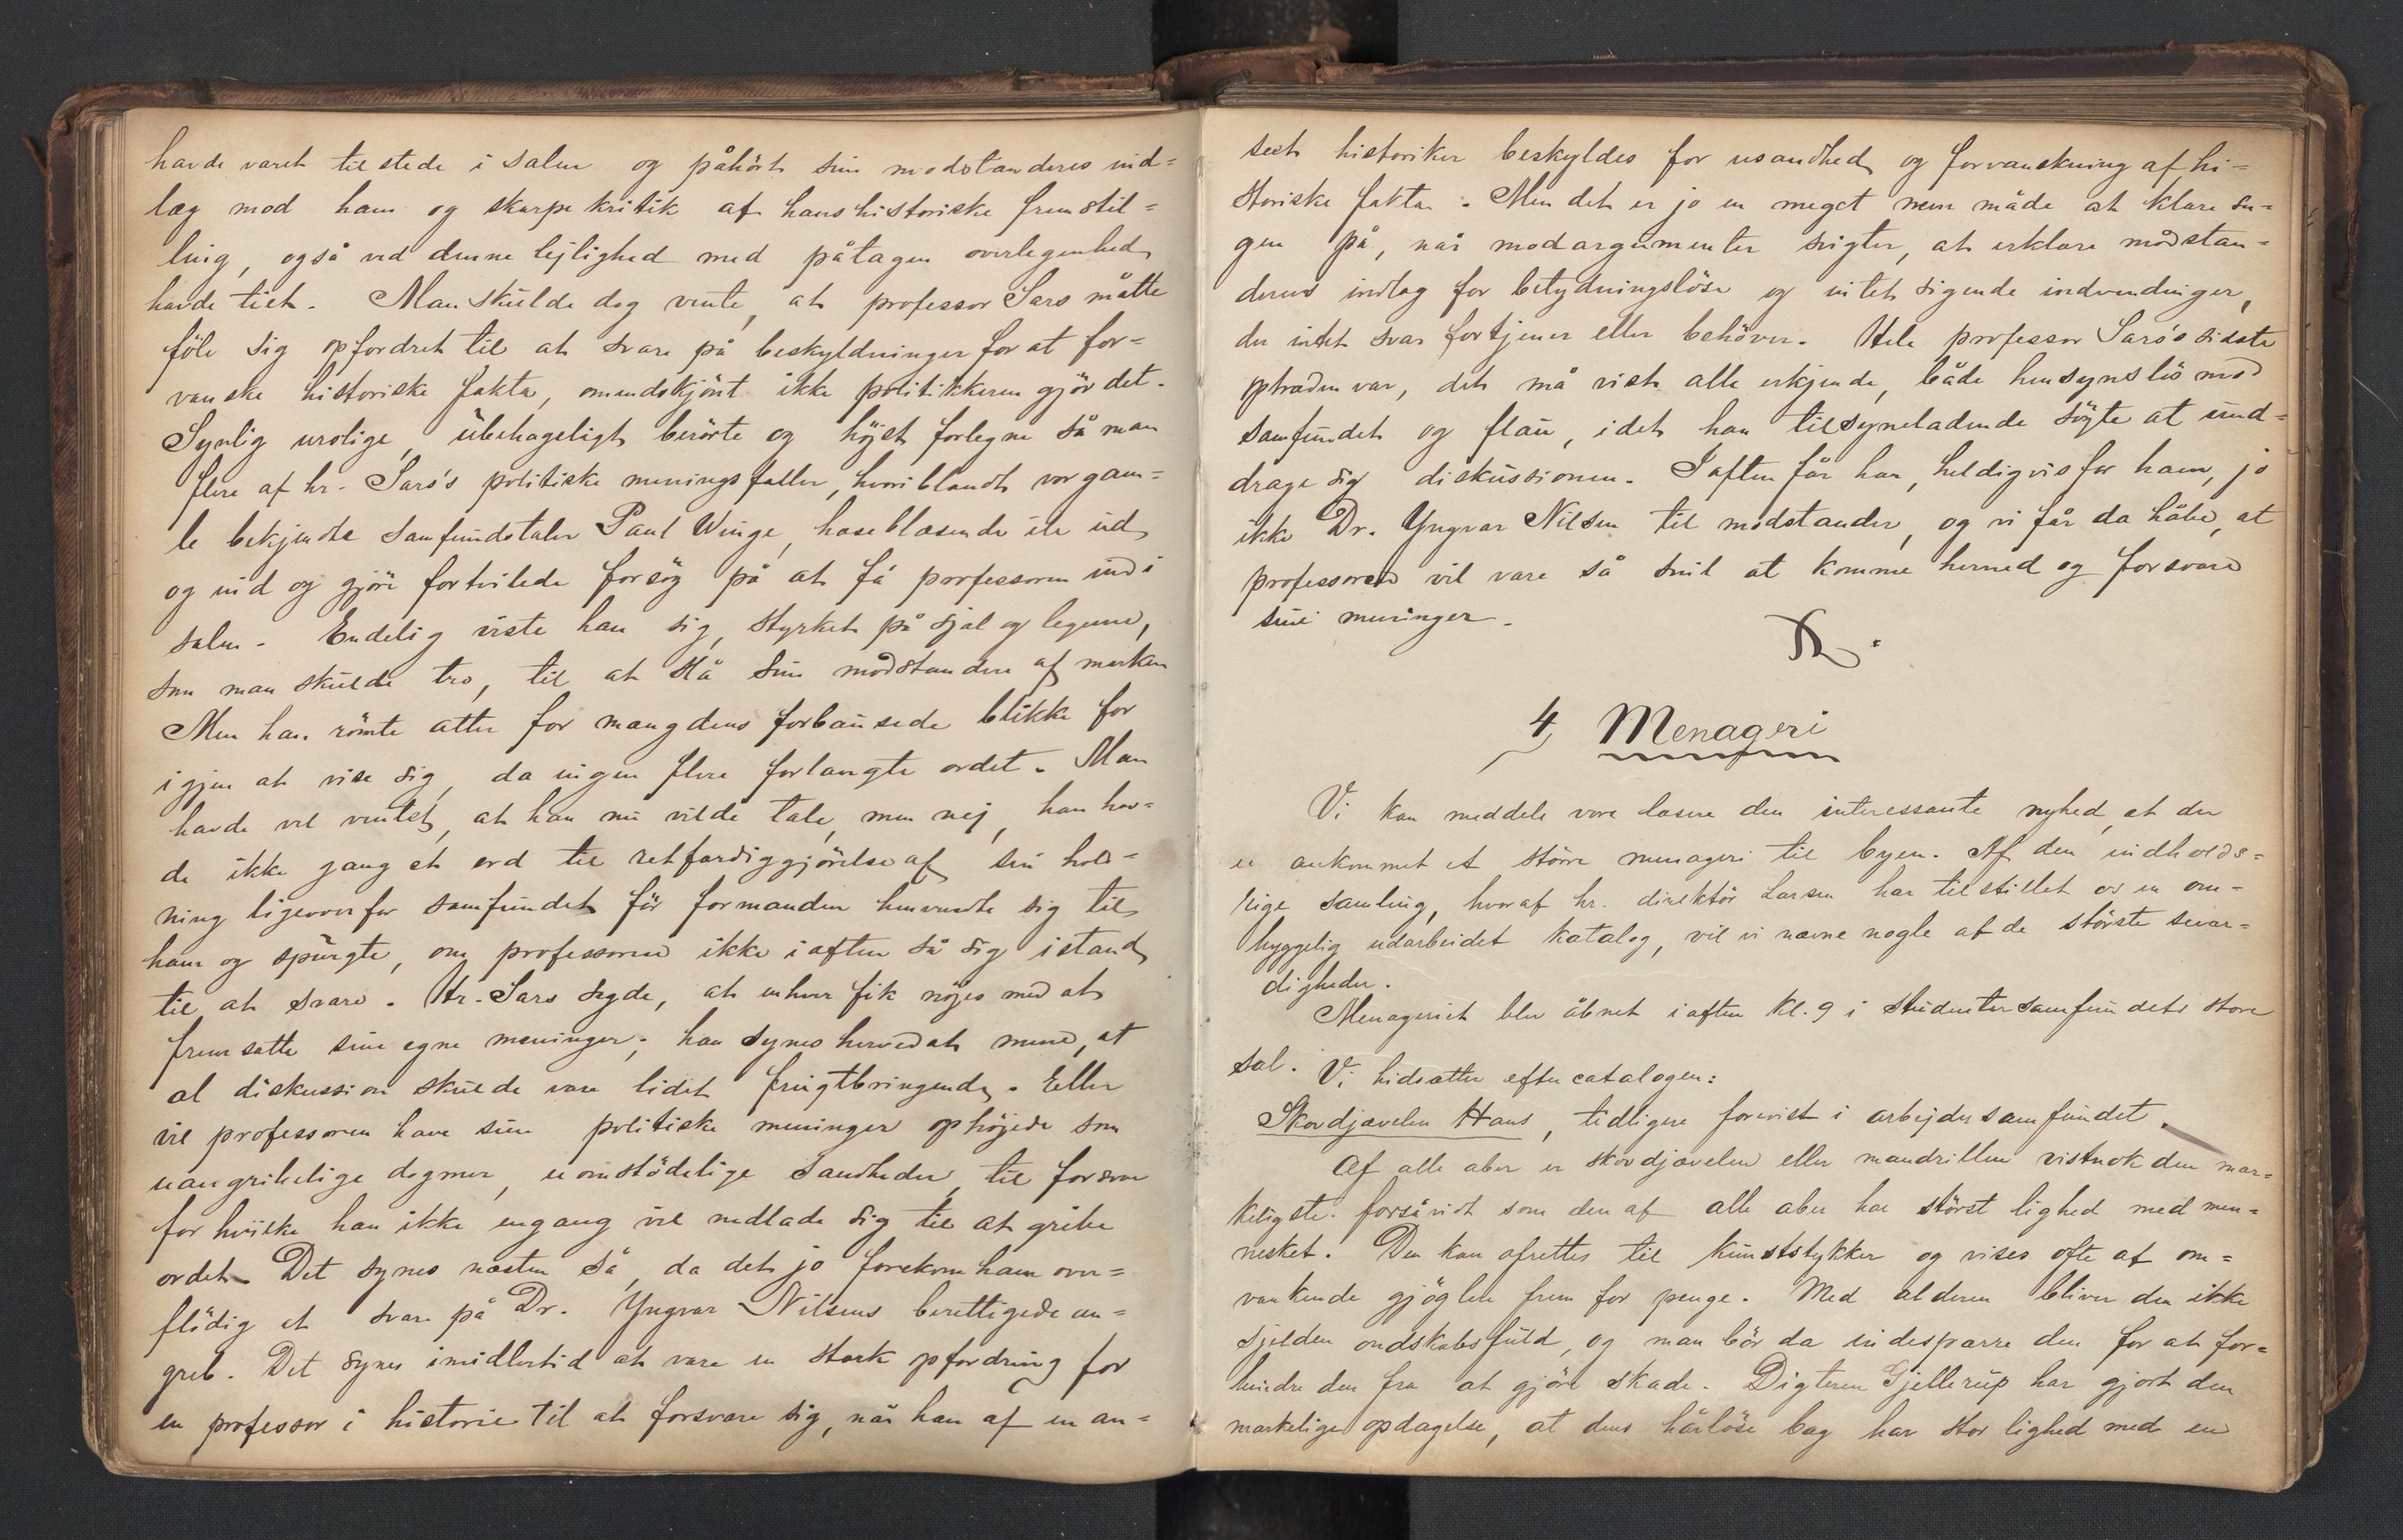 havde været tilstede i salen og påhört sine modstanderes ind=
læg mod ham og skarpe kritik af hans historiske fremstil=
ling, også ved denne lejlighed med påtagen overlegenhed
havde tiet. Man skulde dog vente, at professor Sars måtte
föle sig opfordret til at svare på beskyldninger for at for=
vanske historiske fakta, omendskjönt ikke politikkeren gjör det.
Synlig urolige, übehageligt berörte og höjst forlegne så man
flere af hr. Sars's politiske meningsfæller, hvoriblandt vor gam=
le bekjendte samfundstaler Paul Winge, hæseblæsende ile ud
og ind og gjöre fortvilede forsög på at få professoren ind i
salen. Endelig viste han sig, styrket på sjæl og legeme,
som man skulde tro, til at slå sine modstandere af marken
Men han römte atter for mængdens forbausede blikke for
igjen at vise sig, da ingen flere forlangte ordet. Man
havde vel ventet, at han nu vilde tale, men nej, han hav=
de ikke gang et ord til retfærdiggjörelse af sin hold=
ning ligeoverfor samfundet för formanden henvendte sig til
ham og spurgte, om professoren ikke iaften så sig istand
til at svare. Hr. Sars sagde, at enhver fik nöjes med at
fremsætte sine egne meninger; han synes herved at mene, at
al diskussion skulde være lidet frugtbringende. Eller
vil professoren have sine politiske meninger ophöjede som
uangribelige dogmer, uomstödelige sandheder, til forsvar
for hvilke han ikke engang vil nedlade sig til at gribe
ordet. Det synes næsten så, da det jo forekom ham over=
flödig at svare på Dr. Yngvar Nilsens berettigede an=
greb. Det synes imidlertid at være en stærk opfordring for
en professor i historie til at forsvare sig, når han af en an=
seet historiker beskyldes for usandhed og forvanskning af hi=
storiske fakta. Men det er jo en meget nem måde at klare sa=
gen på, når modargumenter svigter, at erklære modstan=
derens indlæg for betydningslöse og intet sigende indvendinger,
der intet svar fortjener eller behöver. Hele professor Sars's sidste
optræden var, det må vist alle erkjende, både hensynslös mod
samfundet og flau, idet han tilsyneladende sögte at und=
drage sig diskussionen. Iaften får han, heldigvis for ham, jo
ikke Dr. Yngvar Nilsen til modstander, og vi får da håbe, at
professoren vil være så snil at komme herned og forsvare
sine meninger.
4, Menageri
Vi kan meddele vore læsere den interessante nyhed, at der
er ankommet et större menageri til byen. Af den indholds=
rige samling, hvoraf hr. direktör Larsen har tilstillet os en om=
hyggelig udarbeidet katalog, vil vi nævne nogle af de störste sevær=
digheder.
Menageriet blev åbnet iaften kl. 9 i Studentersamfundets store
sal. Vi hidsætter efter catalogen:
Skovdjævelen Hans, tidligere forevist i arbejdersamfundet.
Af alle aber er skovdjævelen eller mandrillen vistnok den mær=
keligste, forsåvidt som den af alle aber har störst lighed med men=
nesket. Den kan afrettes til kunststykker og vises ofte af om=
vankende gjöglere frem for penge. Med alderen bliver den ikke
sjelden ondskabsfuld, og man bör da indespærre den for at for=
hindre den fra at gjöre skade. Digteren Gjellerup har gjort den
mærkelige opdagelse, at dens hårlöse bag har stor lighed med en